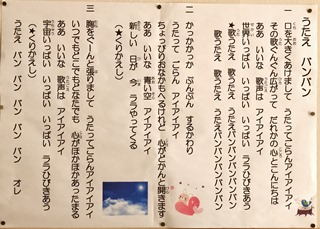 うたえ バンバン
一 口を大きくあけまして うたってごらんアイアイアイ
その歌ぐんぐん広がって だれかの心とこんにちは
世界いっぱい いっぱい いっぱい ララひびきあう
ああ いいな 歌声は アイアイアイ
★歌うたえ 歌うたえ うたえバンバンバンバンバン
歌うたえ 歌うたえ うたえバンバンバンバンバン
二 かっかかっか ぷんぷん するかわり
うたって ごらん アイアイアイ
ちょっぴりおなかもへるけれど 心がどかんと開きます
ああ いいな 青い空 アイアイアイ
新しい 日が 今 ララやってくる
(★くりかえし)
三 胸をぐーんと張りまして うたってごらんアイアイアイ
いつでもどこでもどなたでも 心がほかほかあったまる
ああ いいな 歌声は アイアイアイ
宇宙いっぱい いっぱい いっぱい ララひびきあう
(★くりかえし)
うたえ バン バン バン バン バン オレ